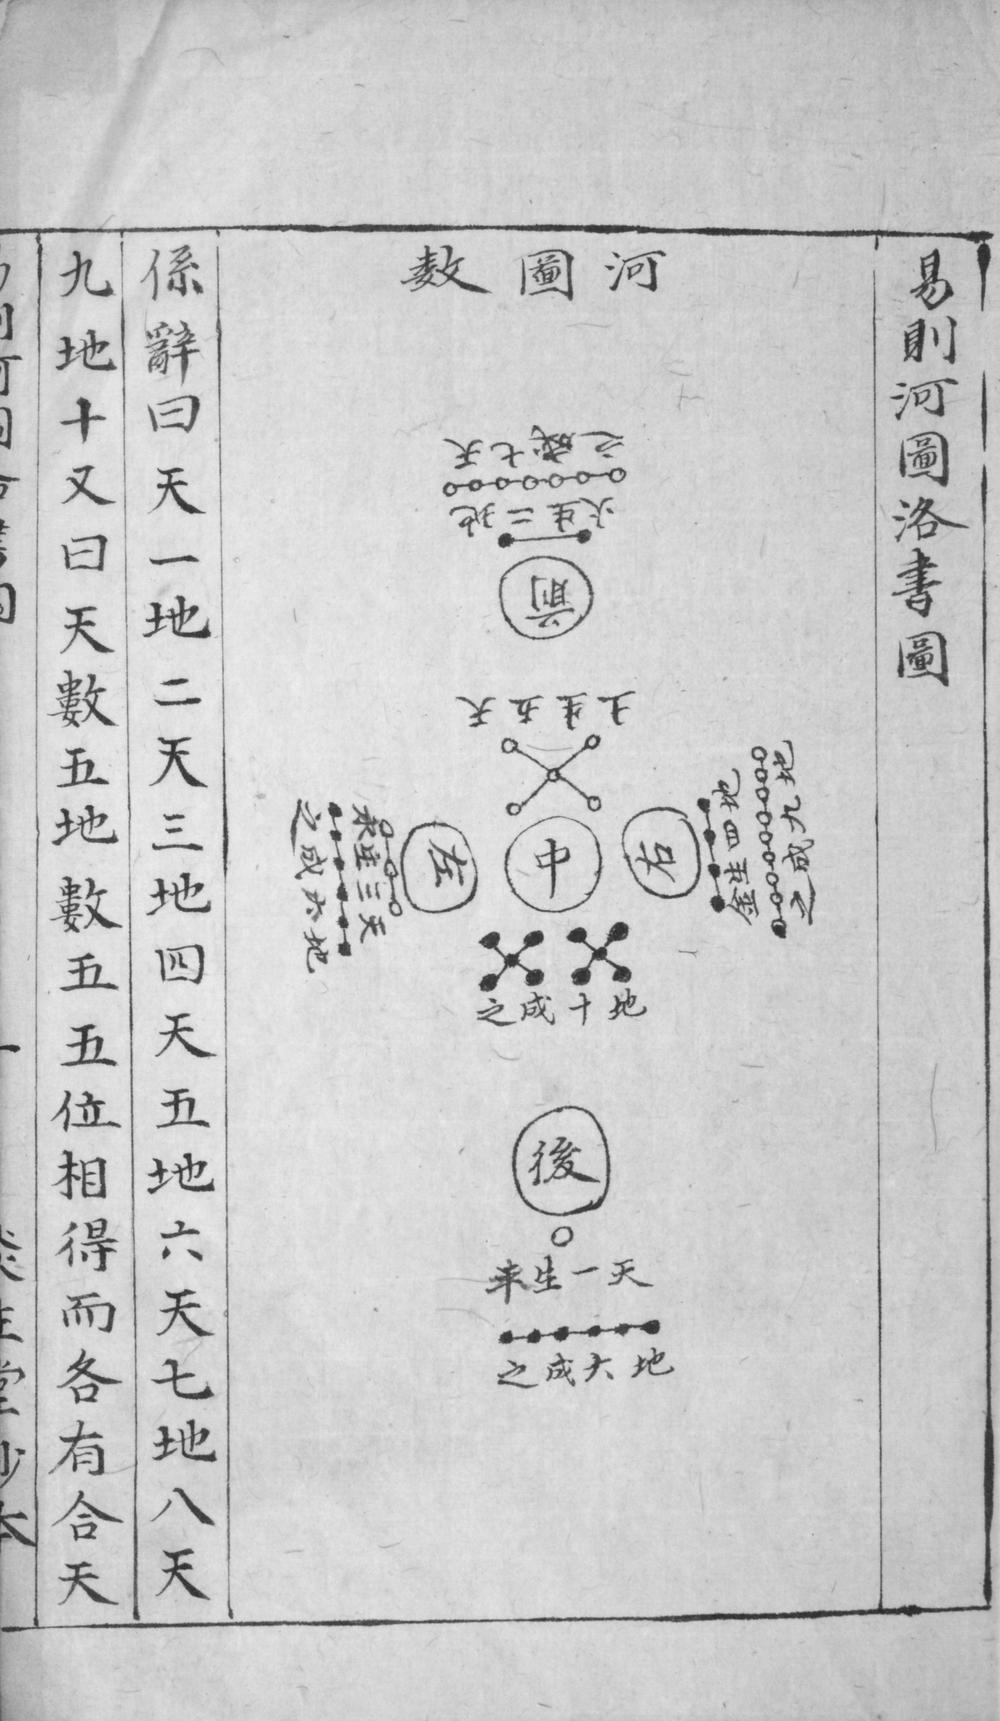 易則河圖洛書圖
河圖数
天七成之
地二生火
前
天五生土
右
地四生金
中
左
天三生木
地十成之
後
天一生耒
地大成之
係辭曰天一地二天三地四天五地六天七地八天
九地十又曰天數五地數五五位相得而各有合天